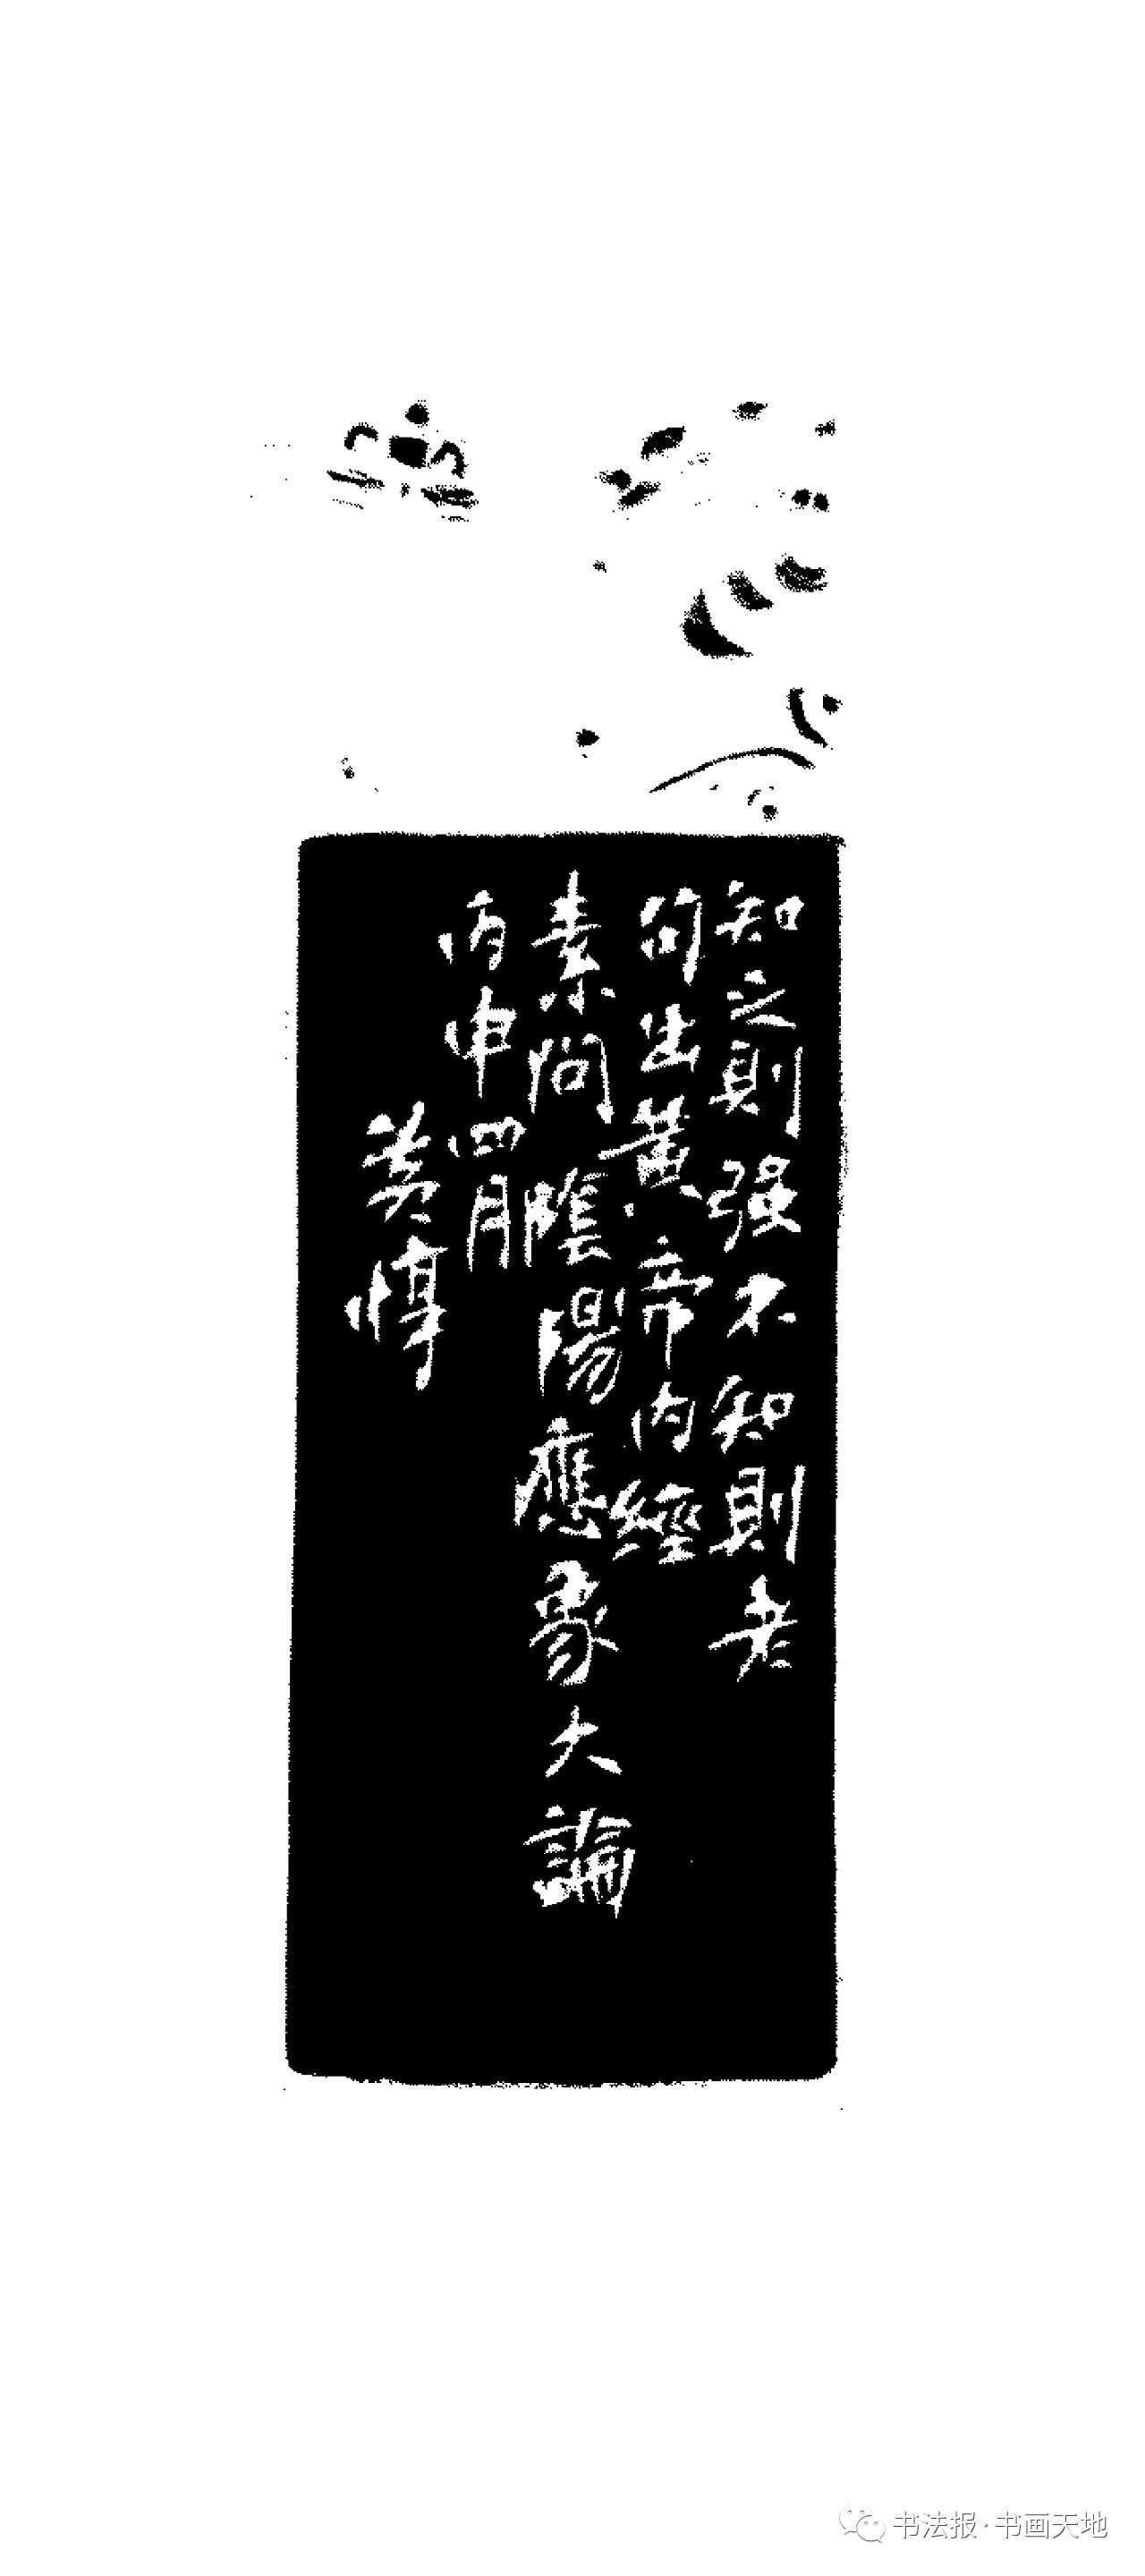 知之則强不知則老
句出黃帝内經
素問陰陽應象大論
丙申四月
英惇
书法报·书画天地